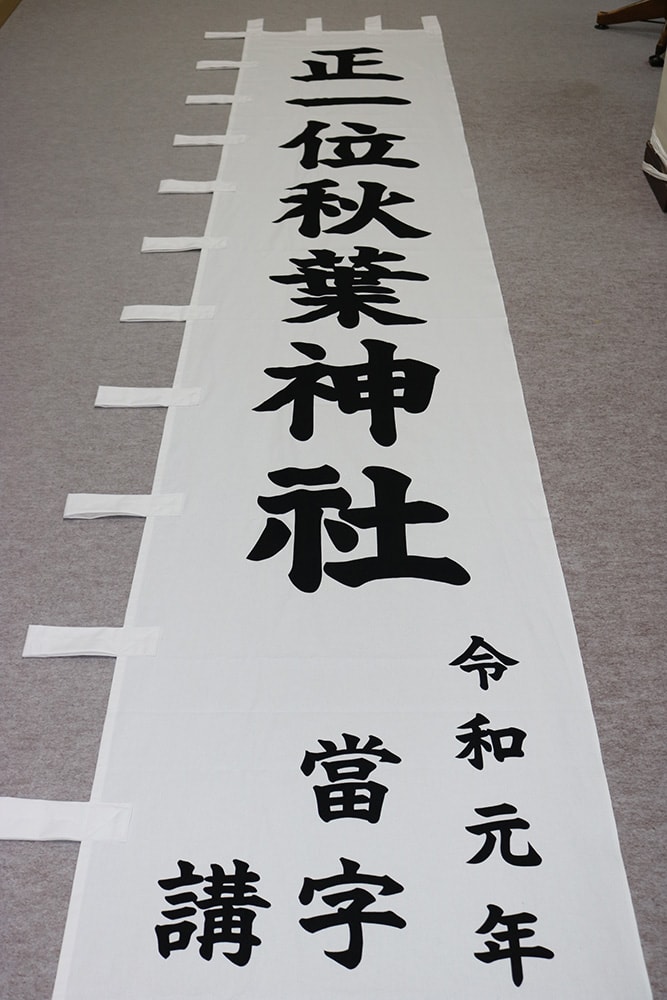 正一位秋葉神社
令和元年
當字
講